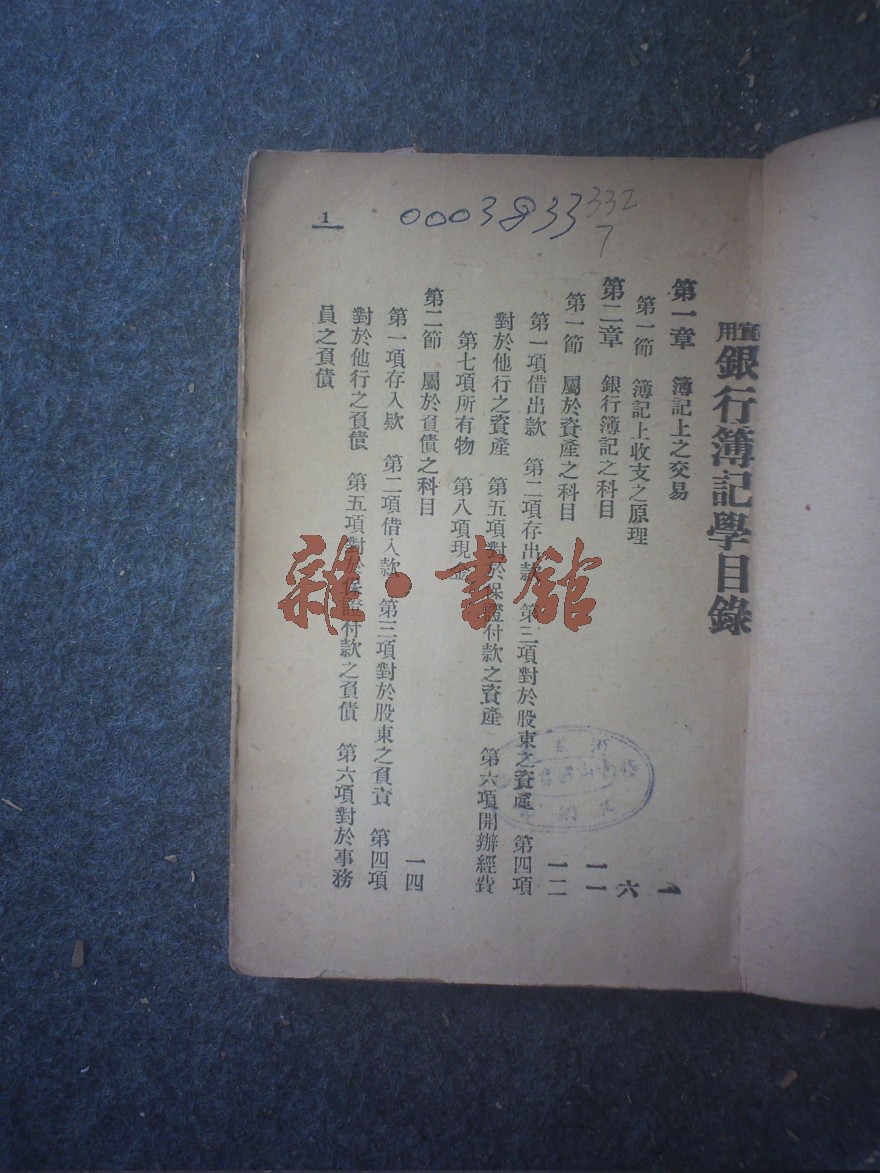 0003833
332
7
1
實用
銀行簿記學目錄
第一章 簿記上之交易 一
第一節 簿記上收支之原理 六
第二章 銀行簿記之科目 一一
第一節 屬於資產之科目 一二
第一項借出款 第二項存出款 第三項對於股東之資產 第四項
對於他行之資產 第五項對於保證付款之資產 第六項開辦經費
第七項所有物 第八項現金
第二節 屬於負債之科目 一四
第一項存入欵 第二項借入款 第三項對於股東之負責 第四項
對於他行之負債 第五項對於保證付款之負債 第六項對於事務
員之負債
雜·書館